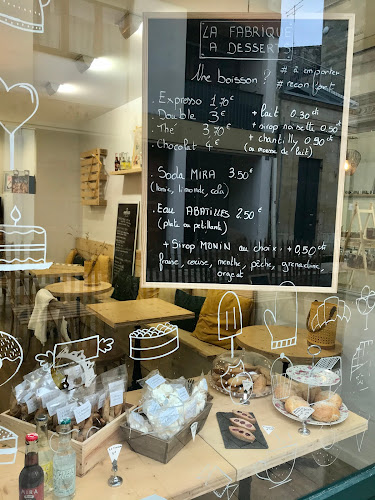 LA FABRIQUE
A DESSERTS
Une boisson ? # à emporter
# réconfort
. Expresso 1,70 € + lait 0.30 cti
Double 3 € + sirop noisette 0.50 cti
. Thé 3,70 € + chantilly 0,50 cti
Chocolat 4 € (ou mousse de lait)
. Soda MIRA 3.50 €
(limonade, cola)
. Eau ABATILLES 2.50 €
(plate ou pétillante)
+ Sirop MONIN au choix : + 0,50 cti
fraise, cerise, menthe, pêche, grenadine,
orgeat